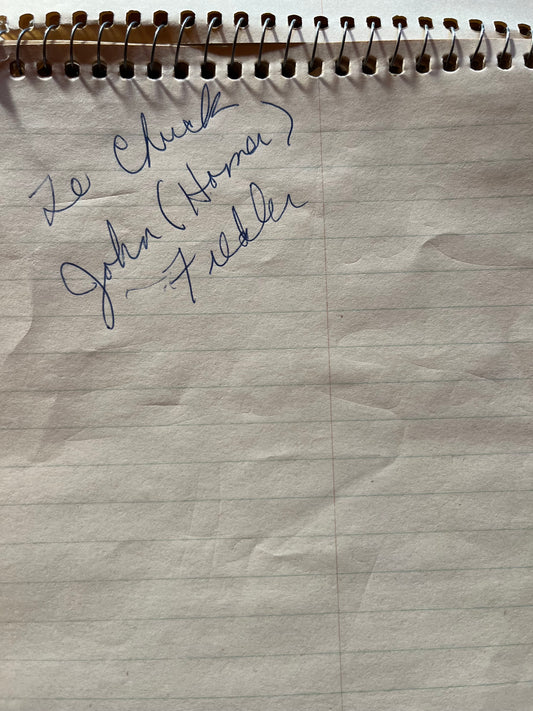 To Chuck
John (Homer)
Fiedler